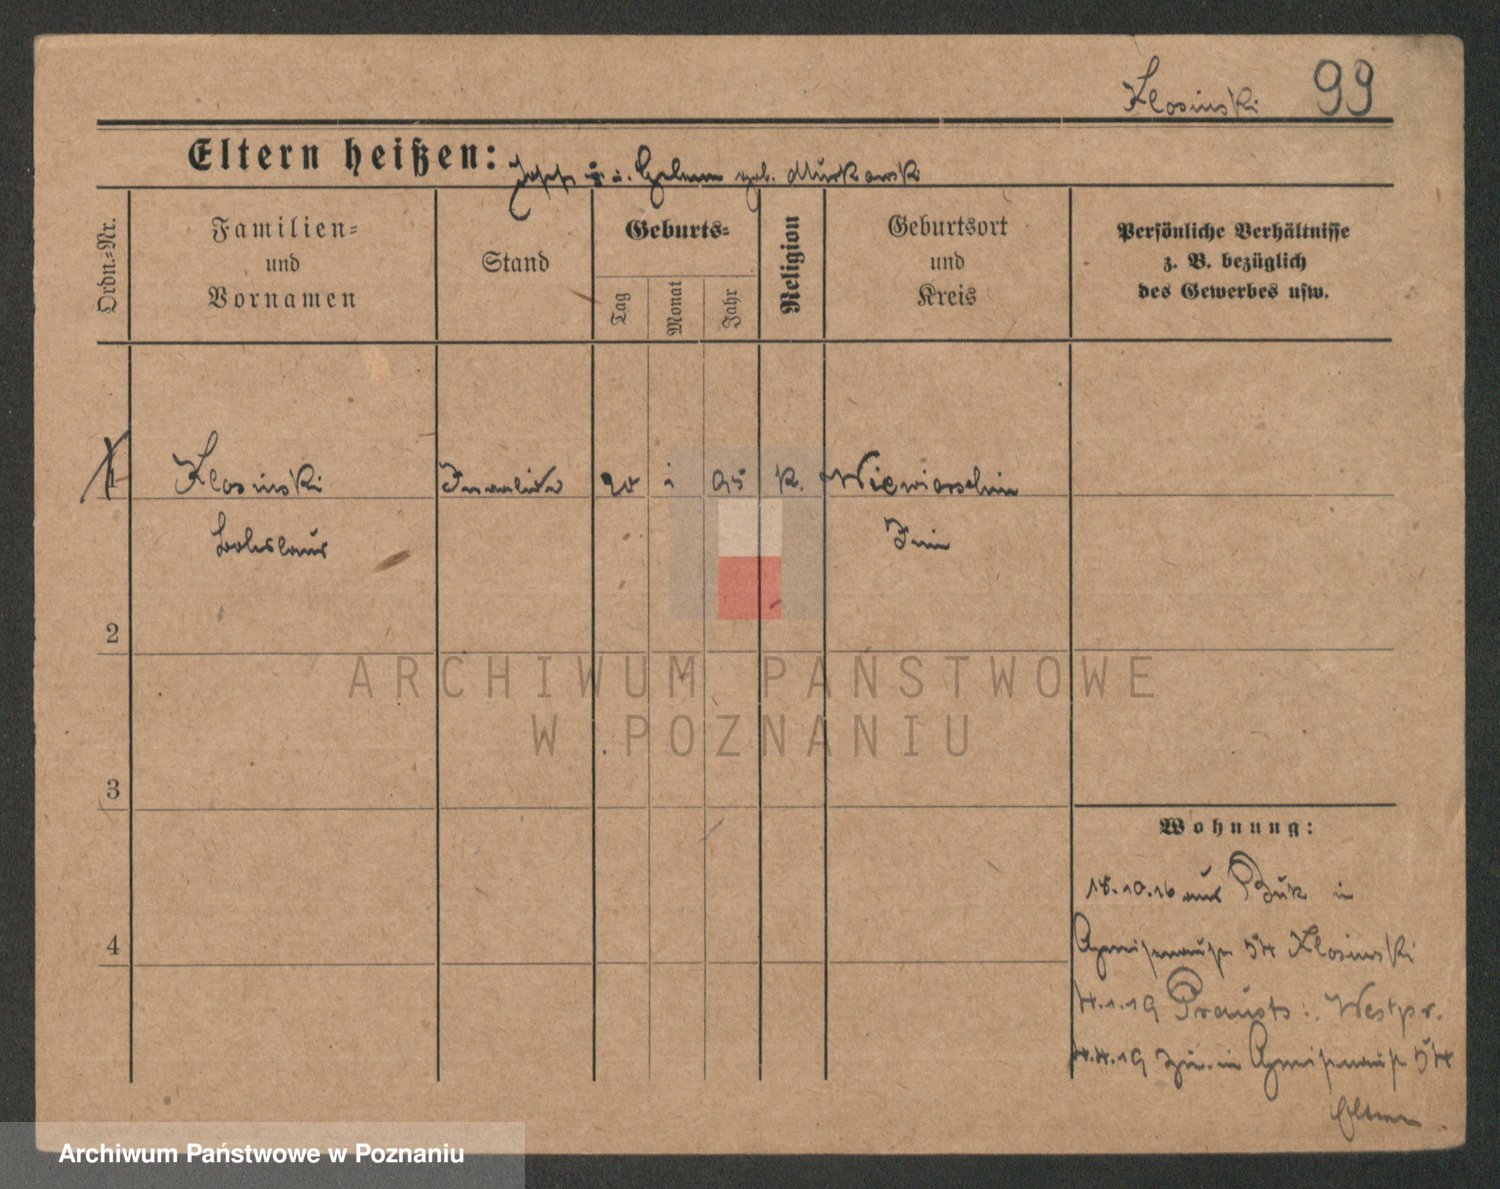 Klosinski 99
Eltern heißen: Josef u. Helene geb. Murkowski
Ordn.-Nr.
Familien-
und
Vornamen
Stand
Geburts-
Tag
Monat
Jahr
Religion
Geburtsort
und
Kreis
Persönliche Verhältnisse
z. B. bezüglich
des Gewerbes usw.
1 Klosinski Invalide 20 1 95 k. Wiewiorschin
Boleslaus Znin
2
3
4
Wohnung:
18.10.16 aus Buk in
54 Klosinski
4.1.19 Praust i. Westpr.
4.4.19 zur. in 54
Eltern
ARCHIWUM PAŃSTWOWE
W POZNANIU
Archiwum Państwowe w Poznaniu